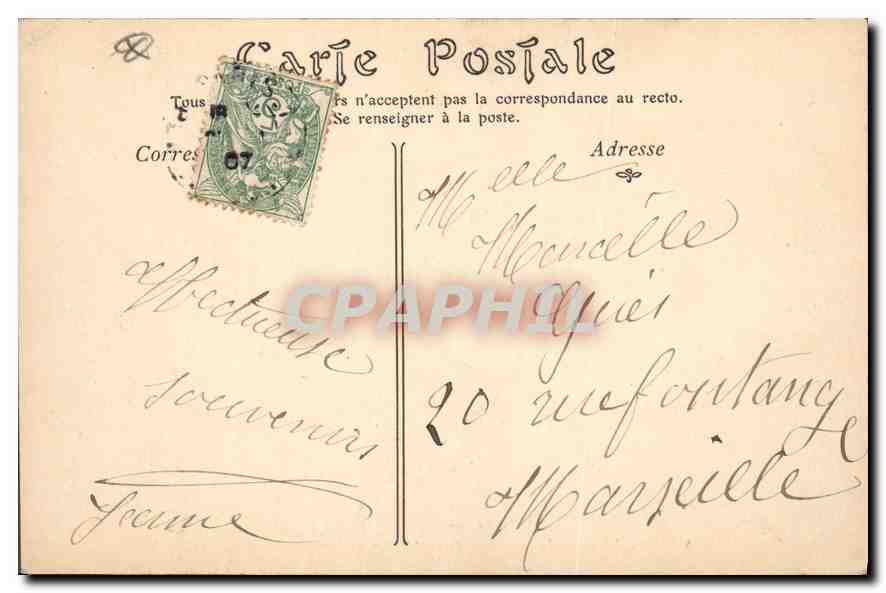 Carte Postale
Tous rs n'acceptent pas la correspondance au recto.
Se renseigner à la poste.
Corres
07
Affectueuse
souvenirs
Jeanne
Adresse
Melle
Marcelle
20 rue fontange
Marseille
CPAPHIL